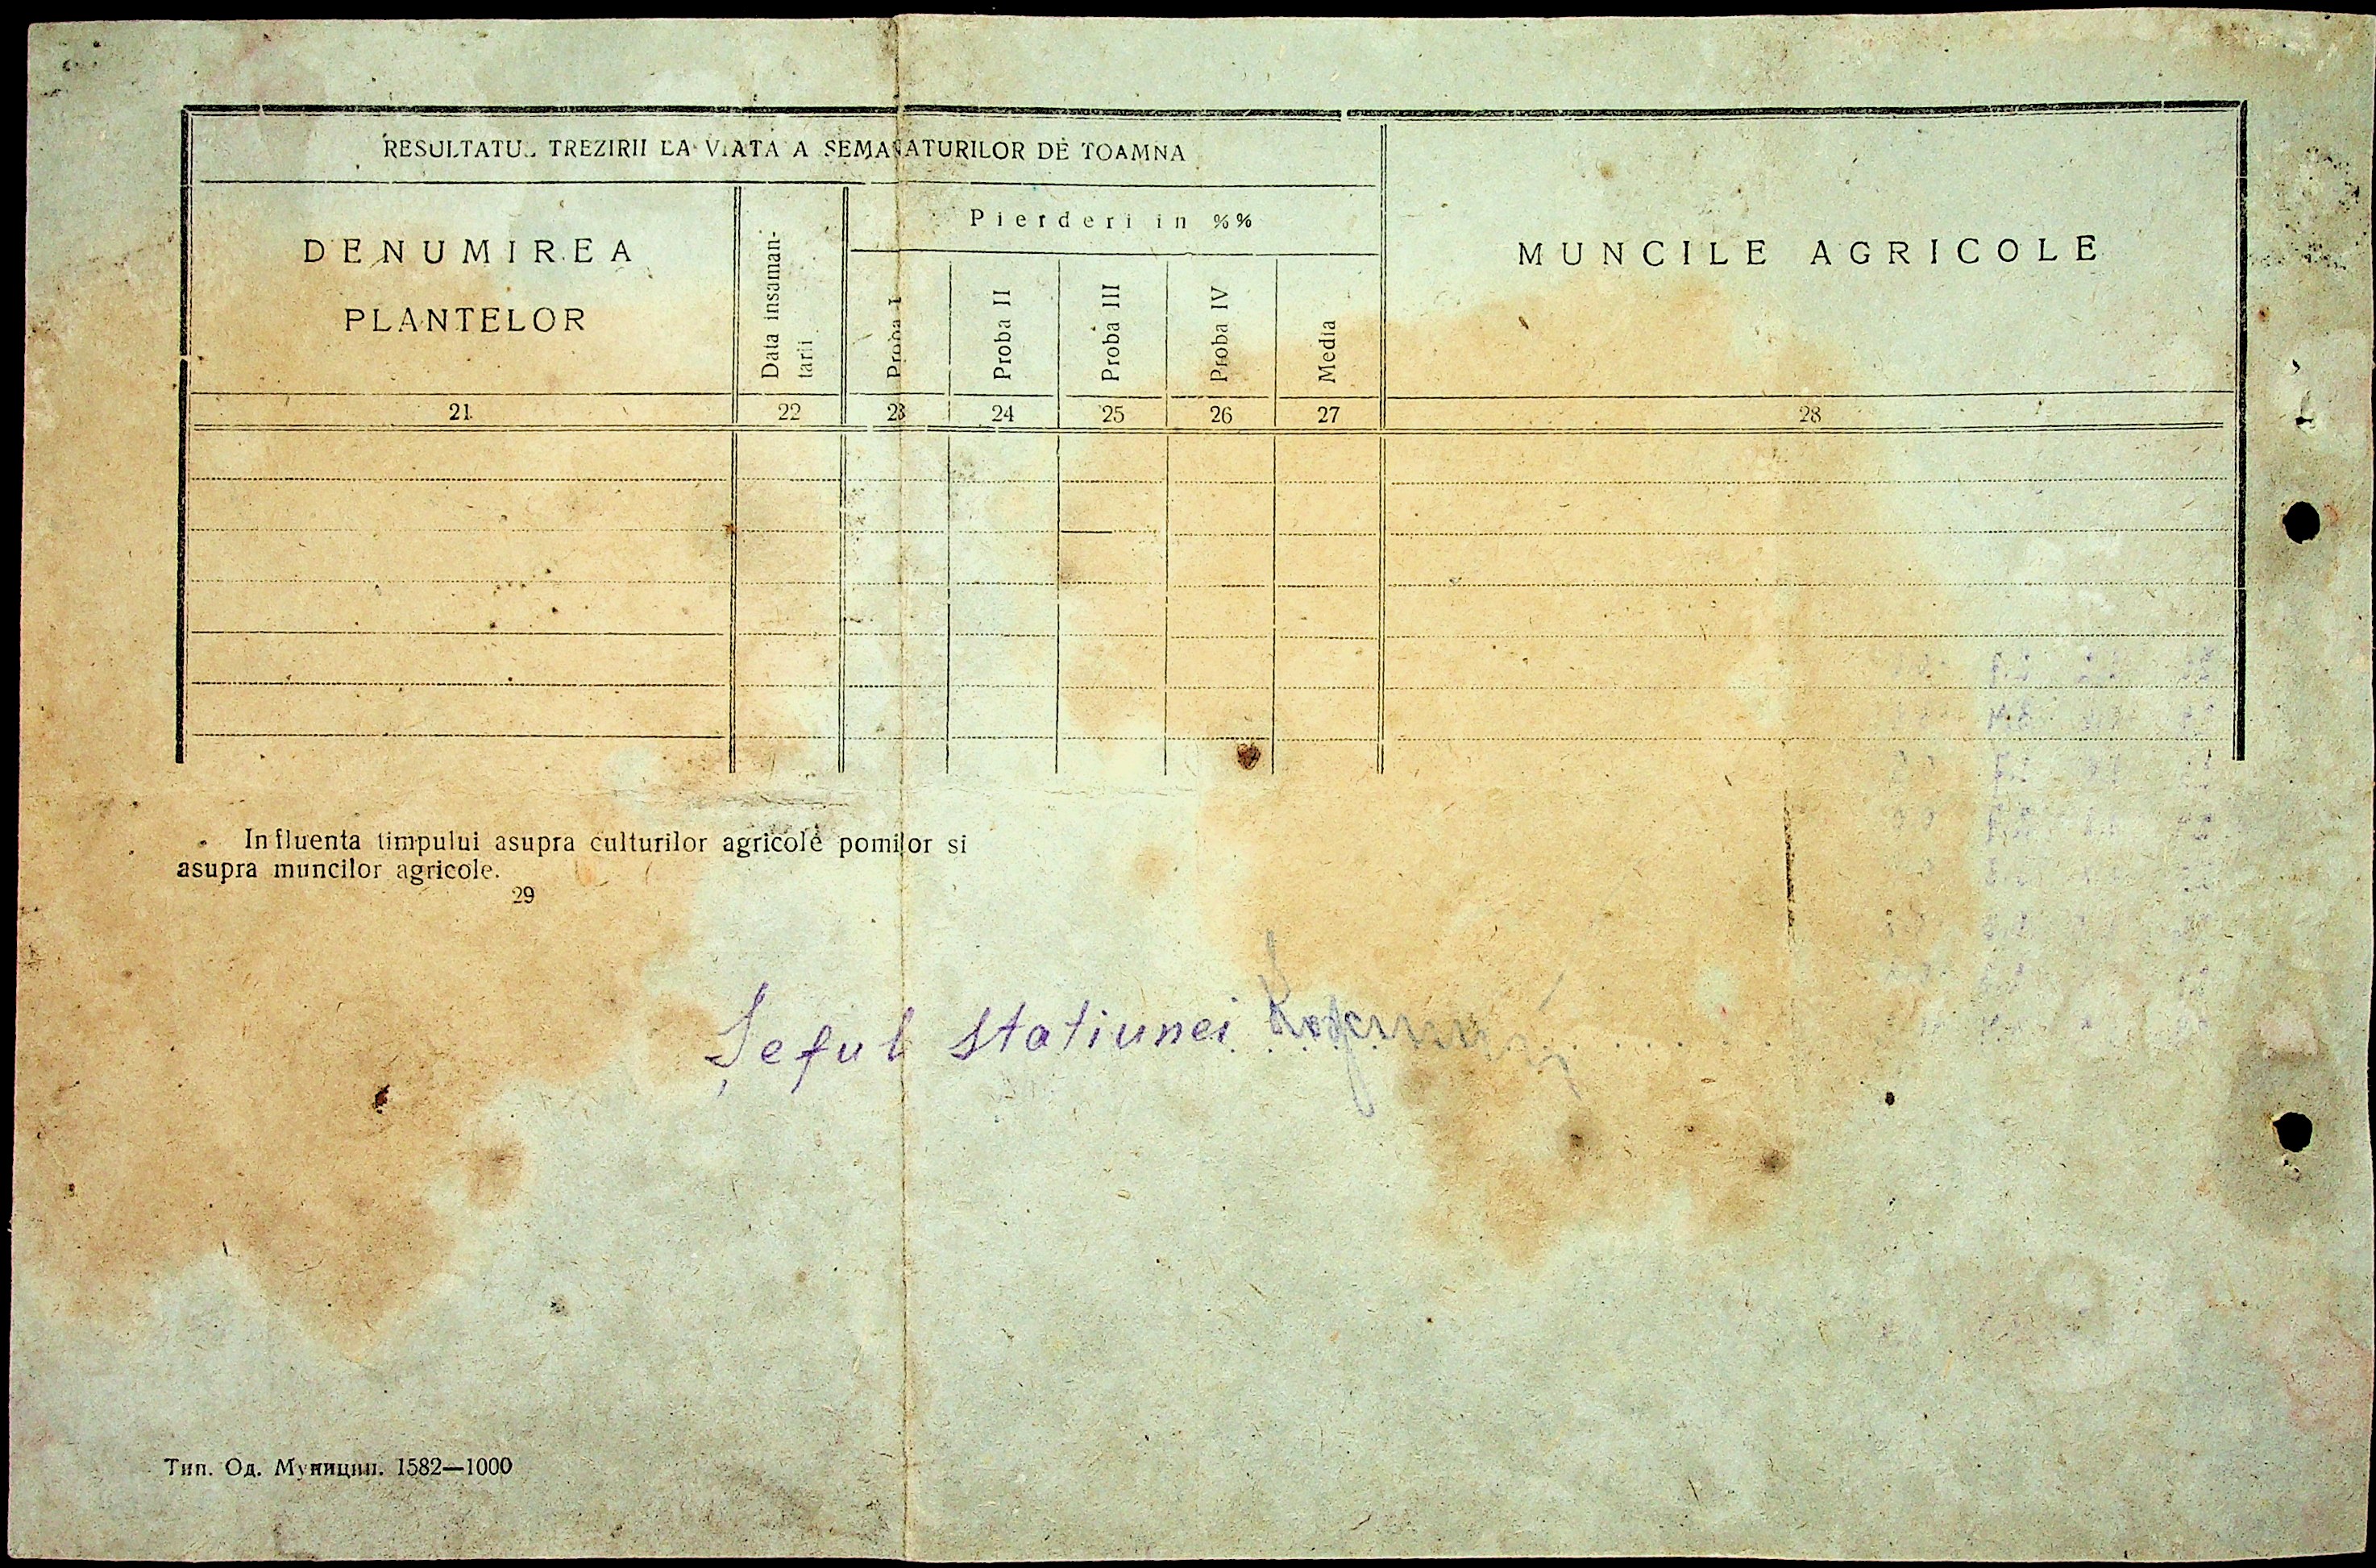 RESULTATUL TREZIRII LA VIATA A SEMANATURILOR DE TOAMNA
DENUMIREA
PLANTELOR
Data insaman-
tarii
Pierderi in %%
Proba I
Proba II
Proba III
Proba IV
Media
MUNCILE AGRICOLE
21 22 23 24 25 26 27 28
Influenta timpului asupra culturilor agricole pomilor si
asupra muncilor agricole.
29
Șeful statiunei
Тип. Од. Муницип. 1582—1000